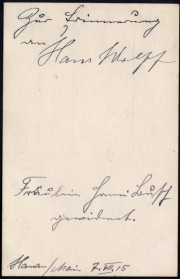 Zur Erinnerung
an Hans Wolff
Fräulein Henni Busch
gewidmet.
Hanau/Main 7.VII.15